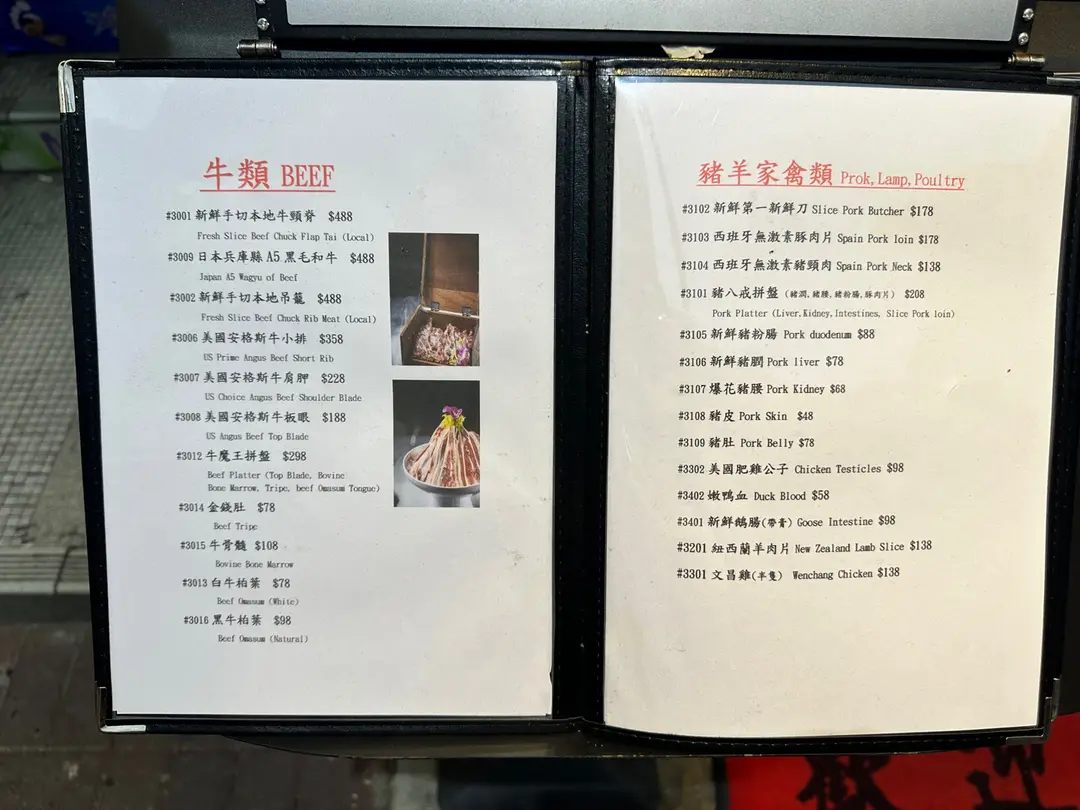 牛類 BEEF
#3001 新鮮手切本地牛頸脊 $488
Fresh Slice Beef Chuck Flap Tai (Local)
#3009 日本兵庫縣 A5 黑毛和牛 $488
Japan A5 Wagyu of Beef
#3002 新鮮手切本地吊龍 $488
Fresh Slice Beef Chuck Rib Meat (Local)
#3006 美國安格斯牛小排 $358
US Prime Angus Beef Short Rib
#3007 美國安格斯牛肩胛 $228
US Choice Angus Beef Shoulder Blade
#3008 美國安格斯牛板眼 $188
US Angus Beef Top Blade
#3012 牛魔王拼盤 $298
Beef Platter (Top Blade, Bovine
Bone Marrow, Tripe, beef Omasum Tongue)
#3014 金錢肚 $78
Beef Tripe
#3015 牛骨髓 $108
Bovine Bone Marrow
#3013 白牛柏葉 $78
Beef Omasum (White)
#3016 黑牛柏葉 $98
Beef Omasum (Natural)
豬羊家禽類 Prok,Lamp,Poultry
#3102 新鮮第一新鮮刀 Slice Pork Butcher $178
#3103 西班牙無激素豚肉片 Spain Pork loin $178
#3104 西班牙無激素豬頸肉 Spain Pork Neck $138
#3101 豬八戒拼盤 (豬潤,豬腰,豬粉腸,豚肉片) $208
Pork Platter (Liver,Kidney,Intestines, Slice Pork loin)
#3105 新鮮豬粉腸 Pork duodenum $88
#3106 新鮮豬膶 Pork liver $78
#3107 爆花豬腰 Pork Kidney $68
#3108 豬皮 Pork Skin $48
#3109 豬肚 Pork Belly $78
#3302 美國肥雞公子 Chicken Testicles $98
#3402 嫩鴨血 Duck Blood $58
#3401 新鮮鵝腸(帶膏) Goose Intestine $98
#3201 紐西蘭羊肉片 New Zealand Lamb Slice $138
#3301 文昌雞(半隻) Wenchang Chicken $138